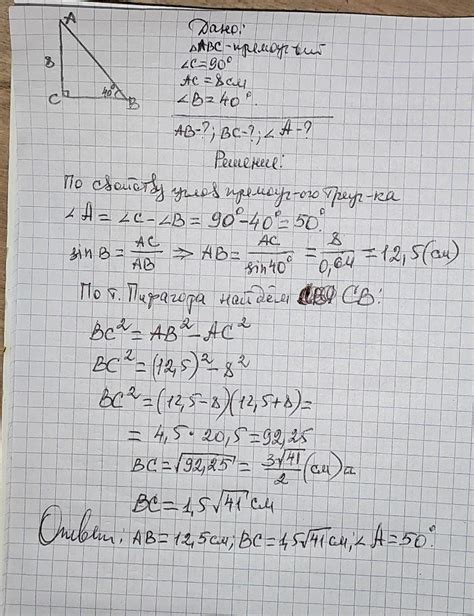 A
8
C
40°
B
Дано:
△ABC-прямоуг-ый
∠C=90°
AC=8см
∠B=40°.
AB-?; BC-?; ∠A-?
Решение:
По свойству углов прямоуг-ого треуг-ка
∠A=∠C-∠B=90°-40°=50°.
sin B = AC/AB ⇒ AB = AC/sin40° = 8/0,64 = 12,5(см)
По т. Пифагора найдём CB:
BC²=AB²-AC²
BC²=(12,5)²-8²
BC²=(12,5-8)(12,5+8)=
=4,5·20,5=92,25
BC=√92,25=3√41/2 (см)
BC=1,5√41 см
Ответ: AB=12,5см; BC=1,5√41 см; ∠A=50°.